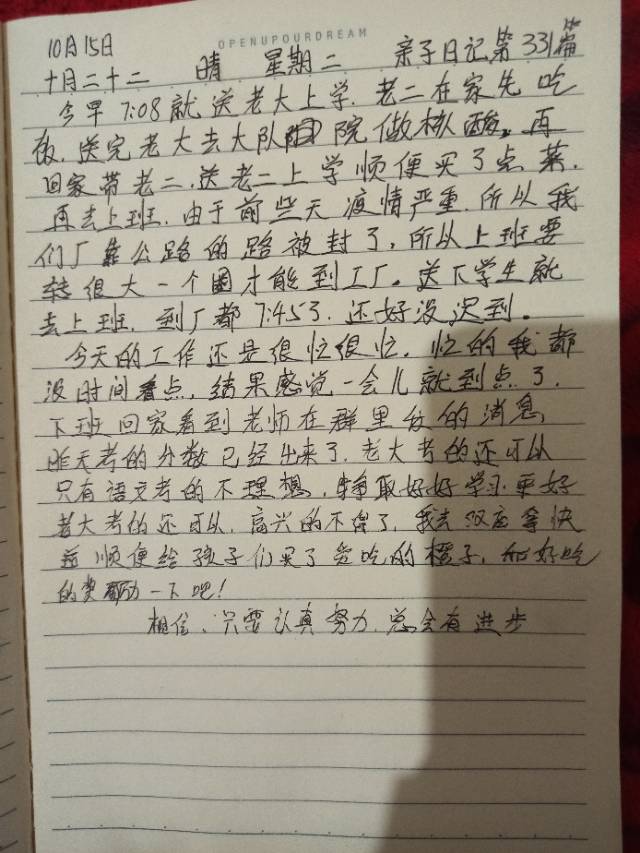 OPENUPOURDREAM
10月15日
十月二十二 晴 星期二 亲子日记第331篇
今早7:08就送老大上学.老二在家先吃
饭.送完老大去大队院做核酸,再
回家带老二.送老二上学顺便买了点菜.
再去上班.由于前些天疫情严重.所以我
们厂靠公路的路被封了,所以上班要
转很大一个圈才能到工厂。送下学生就
去上班.到厂都7:453.还好没迟到。
今天的工作还是很忙很忙.忙的我都
没时间看点,结果感觉一会儿就到点了.
下班回家看到老师在群里发的消息,
昨天考的分数已经出来了.老大考的还可以
只有语文考的不理想,争取好好学习.更好
老大考的还可以.高兴的不得了,我去双应拿快
递顺便给孩子们买了爱吃的橙子,和好吃
的奖励一下吧!
相信,只要认真努力.总会有进步